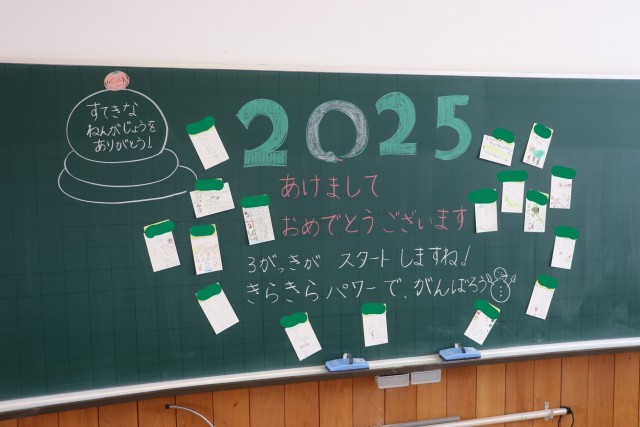 すてきな
ねんがじょうを
ありがとう!
2025
あけまして
おめでとうございます
3がっきが スタートしますね!
きらきらパワーで、がんばろう